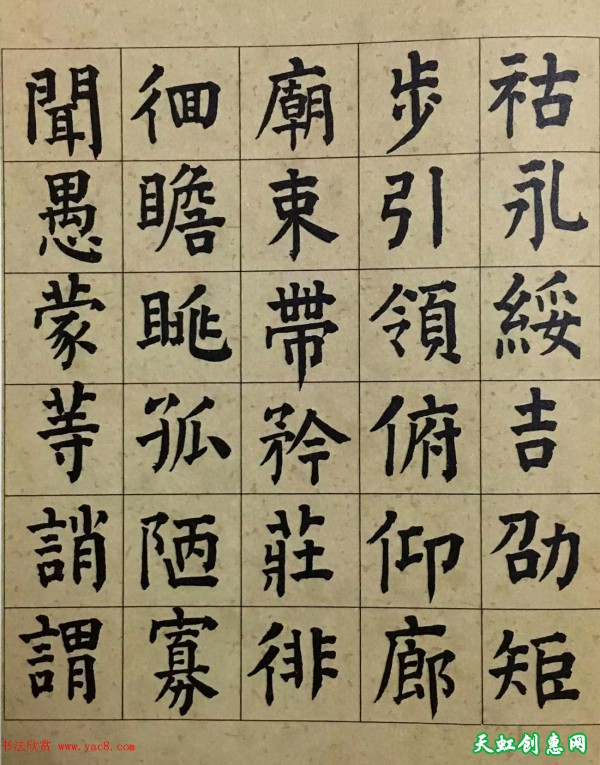 祜永綏吉劭矩
步引領俯仰廊
廟束帶矜莊徘
徊瞻眺孤陋寡
聞愚蒙等誚謂
书法欣赏 www.yac8.com
天虹创惠网